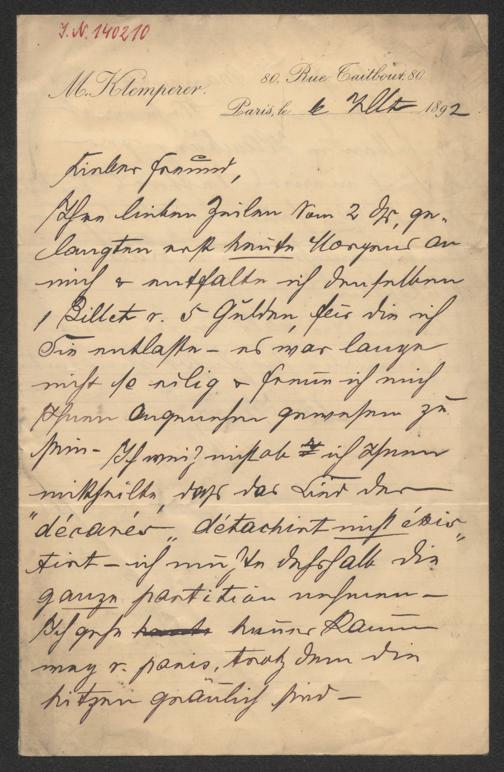 J.N. 140210
M. Klemperer.
80. Rue Taitbout. 80
Paris, le 1892
Lieber Freund,
Ihre lieben Zeilen vom 2 ds, ge-
langten erst heute Morgens an
mich & entfalte ich denselben
1 Billet v. 5 Gulden, für die ich
Sie entlaste – es war lange
nicht so eilig & freue ich mich
Ihnen angenehm gewesen zu
sein – Ich weiß nicht ob ich Ihnen
mittheilte, daß das Lied der
"décavés" détachirt nicht éxis-
tirt – ich mußte deßhalb die
ganze partition nehmen –
Ich gehe heuer kaum
weg v. Paris, trotzdem die
Hitzen gräulich sind –